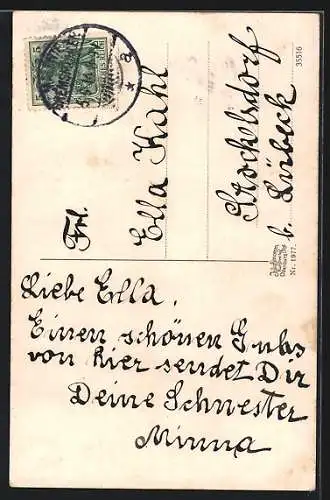 Frl.
Ella Kahl
Stockelsdorf
b. Lübeck
Liebe Ella.
Einen schönen Gruß
von hier sendet Dir
Deine Schwester
Minna
Nr. 1977.
35516